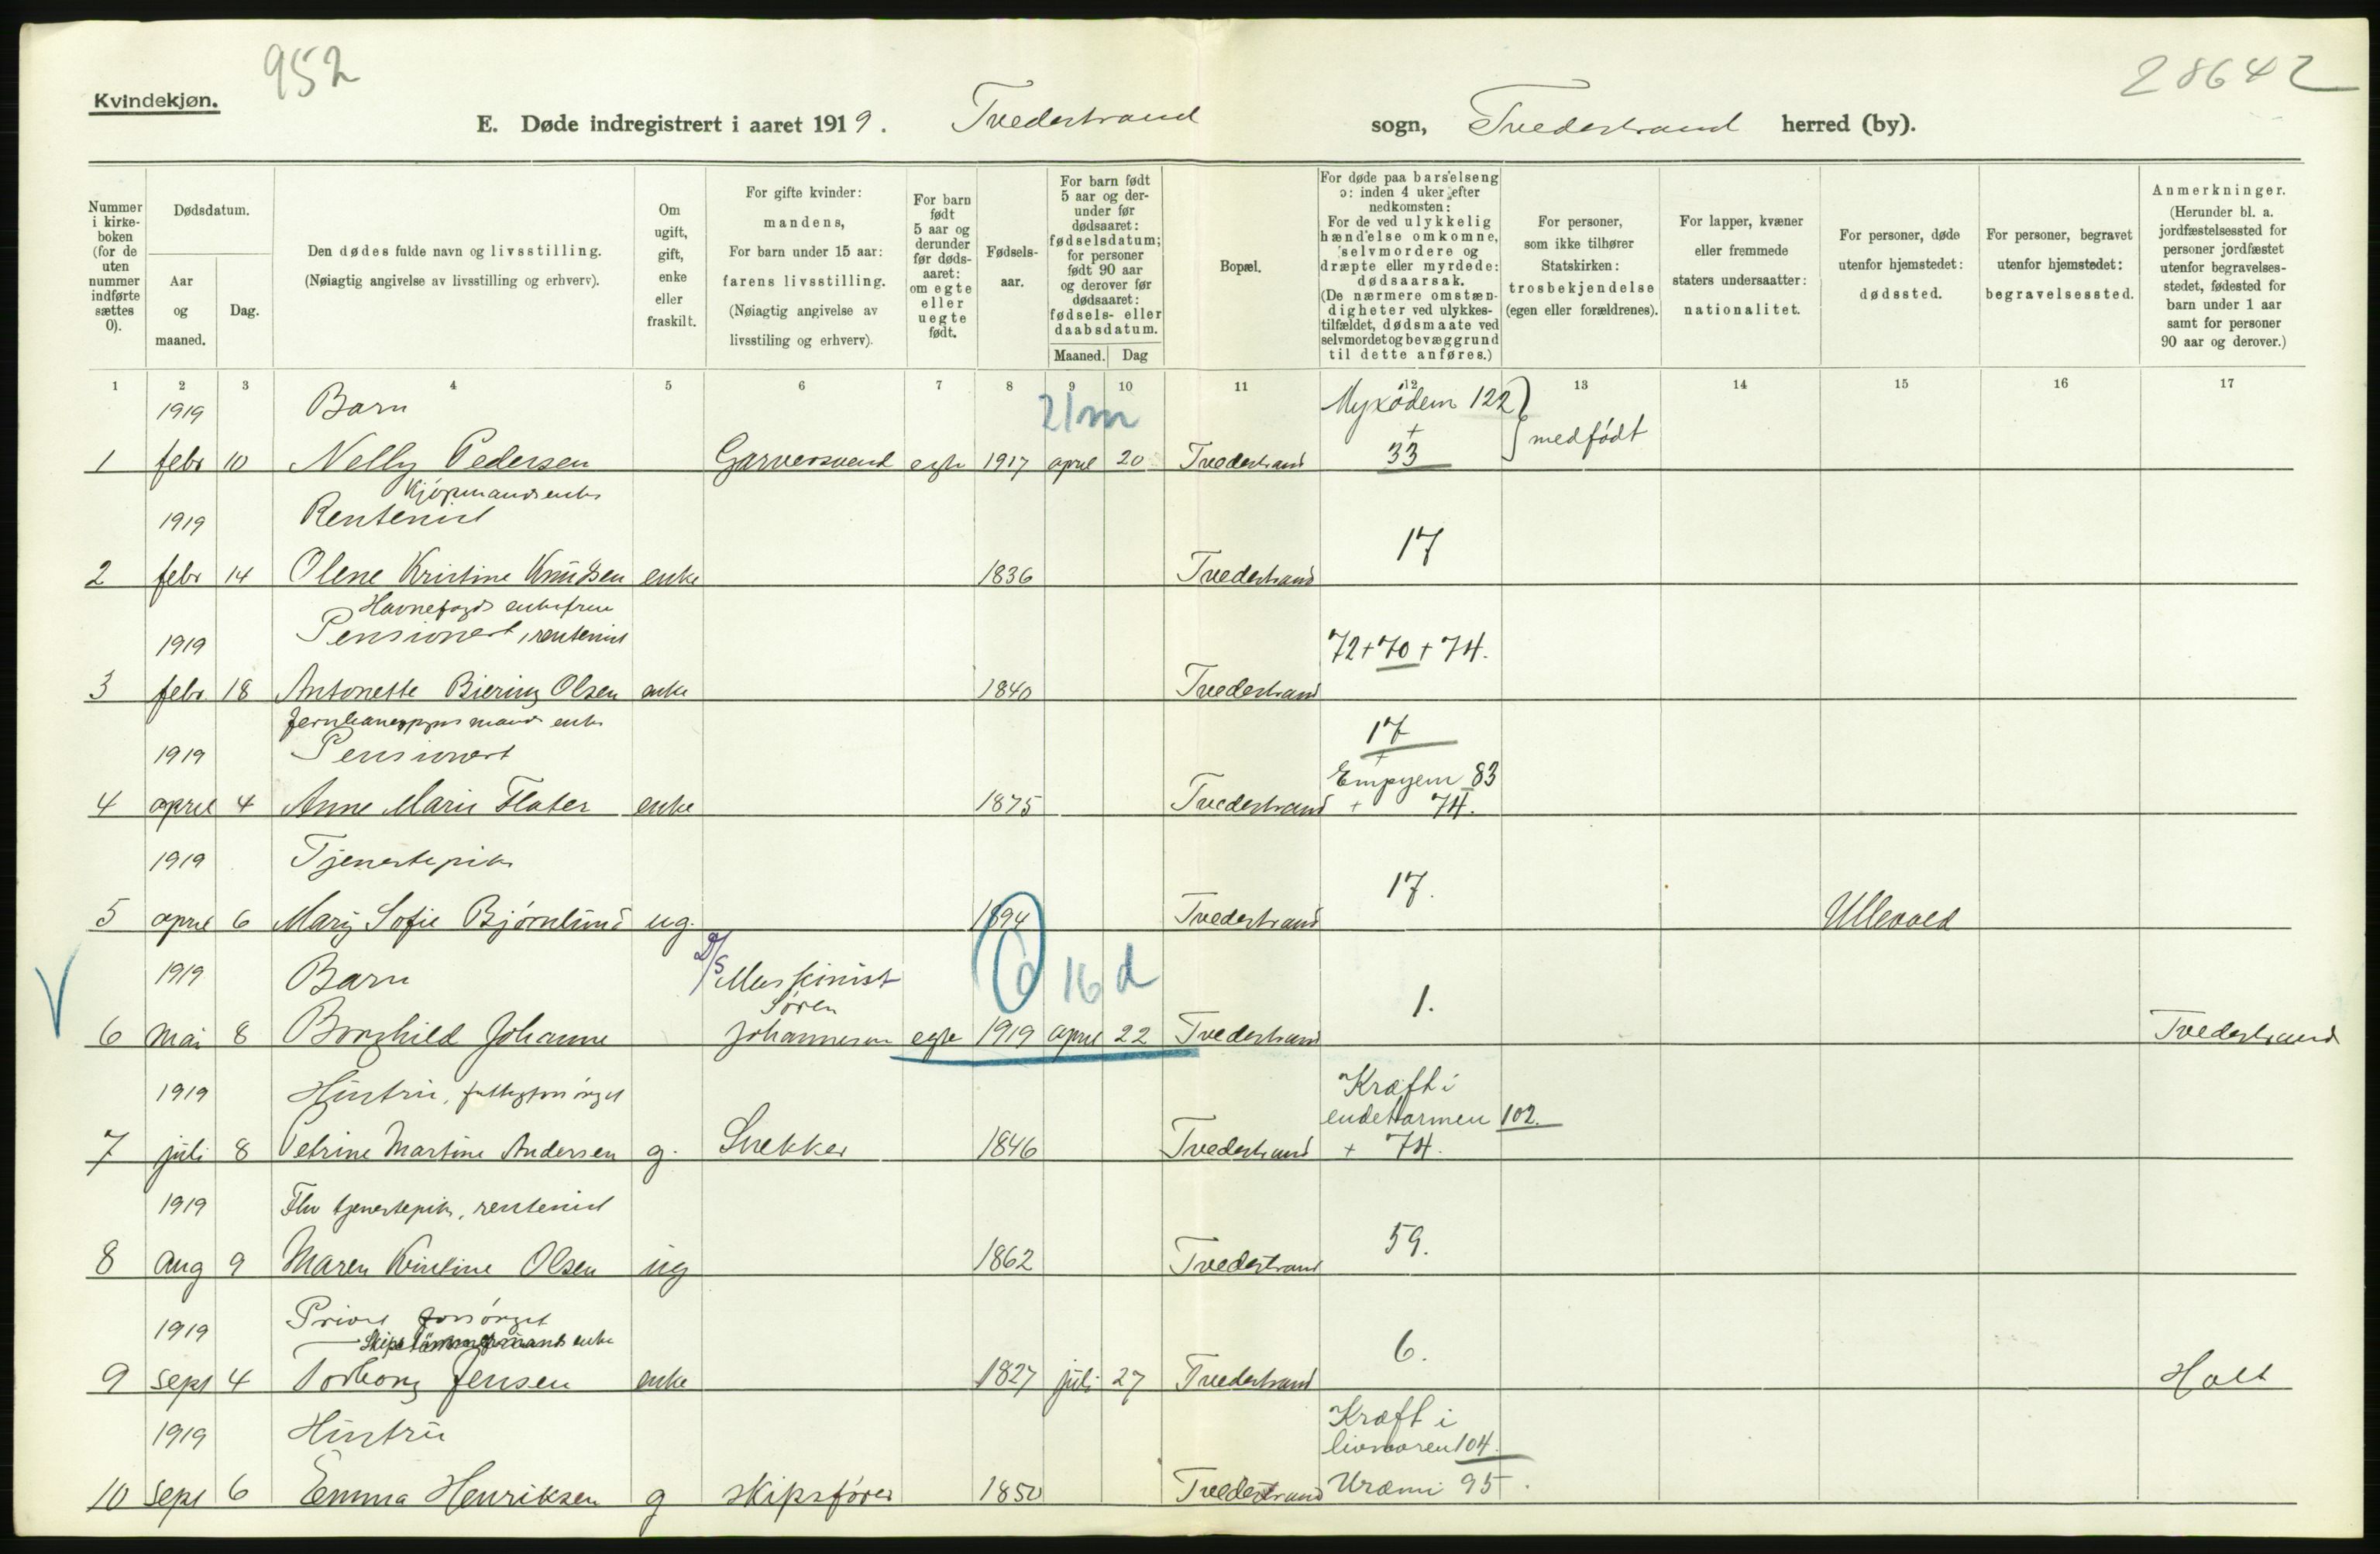 952
28642
Kvindekjøn.
E. Døde indregistrert i aaret 1919. Tvedestrand sogn, Tvedestrand herred (by).
Nummer i kirke-boken (for de uten nummer indførte sættes 0).
Dødsdatum.
Aar og maaned.
Dag.
Den dødes fulde navn og livsstilling.
(Nøiagtig angivelse av livsstilling og erhverv).
Om ugift, gift, enke eller fraskilt.
For gifte kvinder: mandens,
For barn under 15 aar: farens livsstilling.
(Nøiagtig angivelse av livsstiling og erhverv).
For barn født 5 aar og derunder før døds-aaret: om egte eller uegte født.
Fødsels-aar.
For barn født 5 aar og der-under før dødsaaret: fødselsdatum; for personer født 90 aar og derover før dødsaaret: fødsels- eller daabsdatum.
Maaned.
Dag
Bopæl.
For døde paa barselseng ɔ: inden 4 uker efter nedkomsten:
For de ved ulykkelig hændelse omkomne, selvmordere og dræpte eller myrdede: dødsaarsak.
(De nærmere omstæn-digheter ved ulykkes-tilfældet, dødsmaate ved selvmordet og bevæggrund til dette anføres.)
For personer, som ikke tilhører Statskirken: trosbekjendelse (egen eller forældrenes).
For lapper, kvæner eller fremmede staters undersaatter: nationalitet.
For personer, døde utenfor hjemstedet: dødssted.
For personer, begravet utenfor hjemstedet: begravelsessted.
Anmerkninger.
(Herunder bl. a. jordfæstelsessted for personer jordfæstet utenfor begravelses-stedet, fødested for barn under 1 aar samt for personer 90 aar og derover.)
1 2 3 4 5 6 7 8 9 10 11 12 13 14 15 16 17
1919 Barn 21 m Myxødem 122 } medfødt
1 febr 10 Nelly Pedersen Garversvend egte 1917 april 20 Tvedestrand + 33
Kjøpmandsenke
1919 Rentenist 17
2 febr 14 Olene Kristine Knudsen enke 1836 Tvedestrand
Havnefogds enkefrue
1919 Pensionert, rentenist 72+70+74.
3 febr 18 Antonette Biering Olsen enke 1840 Tvedestrand
enke 17
1919 Pensionert + Empyem 83
4 april 4 Anne Marie Flater enke 1875 Tvedestrand + 74.
1919 Tjenestepike 17.
5 april 6 Mary Sofie Bjørnlund ug. 1894 Tvedestrand Ullevold
1919 Barn D/S Maskinist 0 16 d 1.
Søren
6 mai 8 Borghild Johanne Johannesen egte 1919 april 22 Tvedestrand Tvedestrand
1919 Hustru, fattigforsørget Kræft i
endetarmen 102.
7 juli 8 Petrine Martine Andersen g. Snekker 1846 Tvedestrand + 74.
1919 Fhv tjenestepike, rentenist 59.
8 aug 9 Maren Kristine Olsen ug 1862 Tvedestrand
1919 Privat forsørget
Skipstømmermands enke 6.
9 sept 4 Torborg Jensen enke 1827 juli 27 Tvedestrand Holt
1919 Hustru Kræft i
livmoren 104.
10 sept 6 Emma Henriksen g skipsfører 1850 Tvedestrand Uræmi 95.